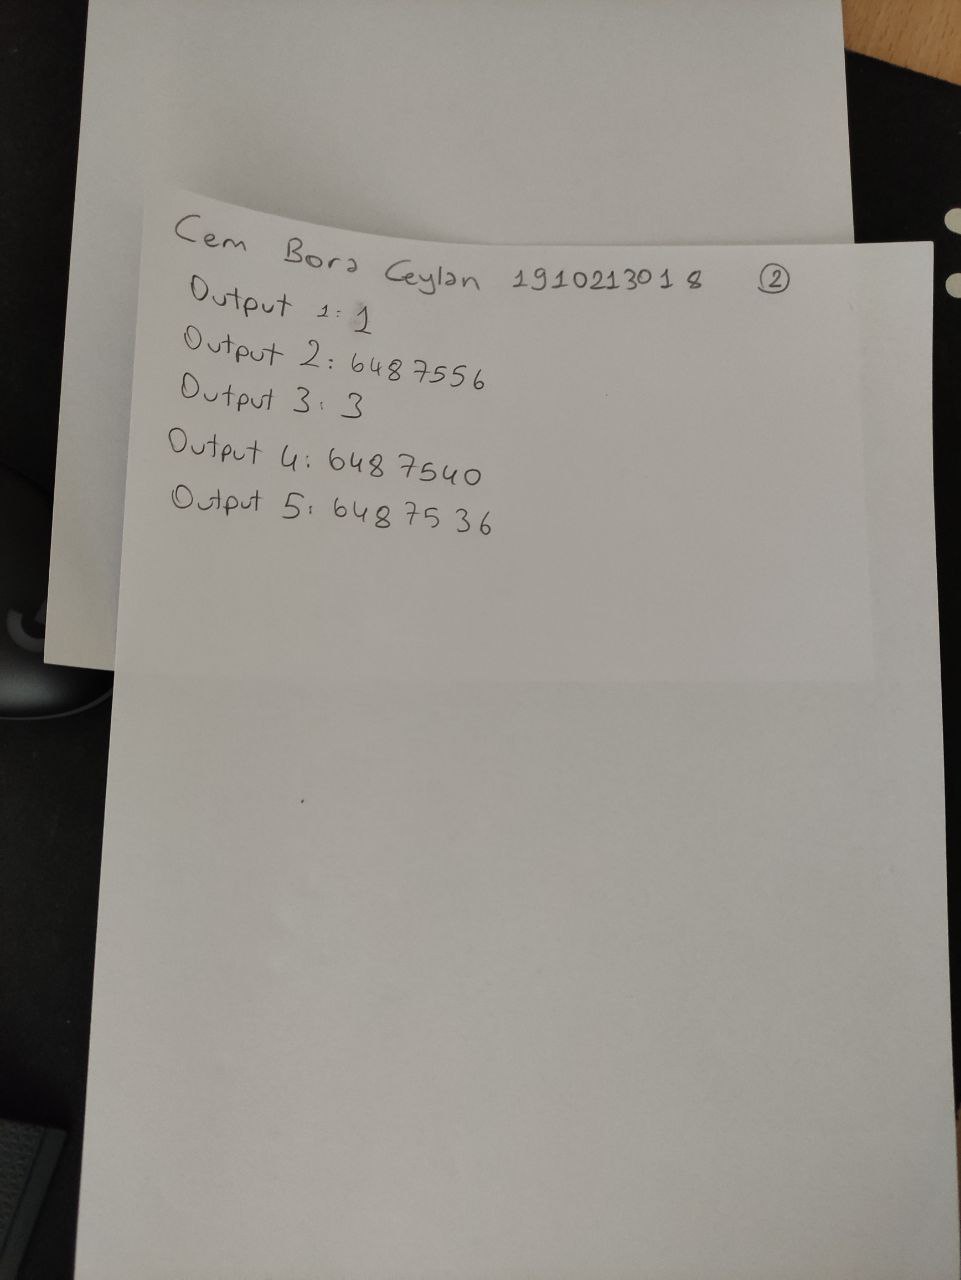 Cem Bora Ceylan 1910213018 ②
Output 1: 1
Output 2: 6487556
Output 3: 3
Output 4: 6487540
Output 5: 6487536